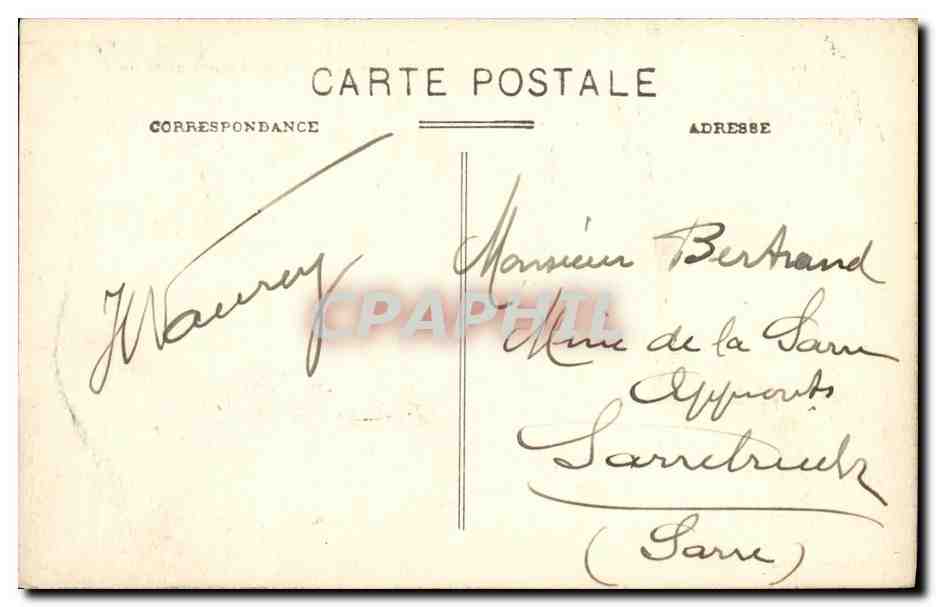 CARTE POSTALE
CORRESPONDANCE
ADRESSE
Monsieur Bertrand
Mine de la Sarre
Sarrebruck
(Sarre)
CPAPHIL